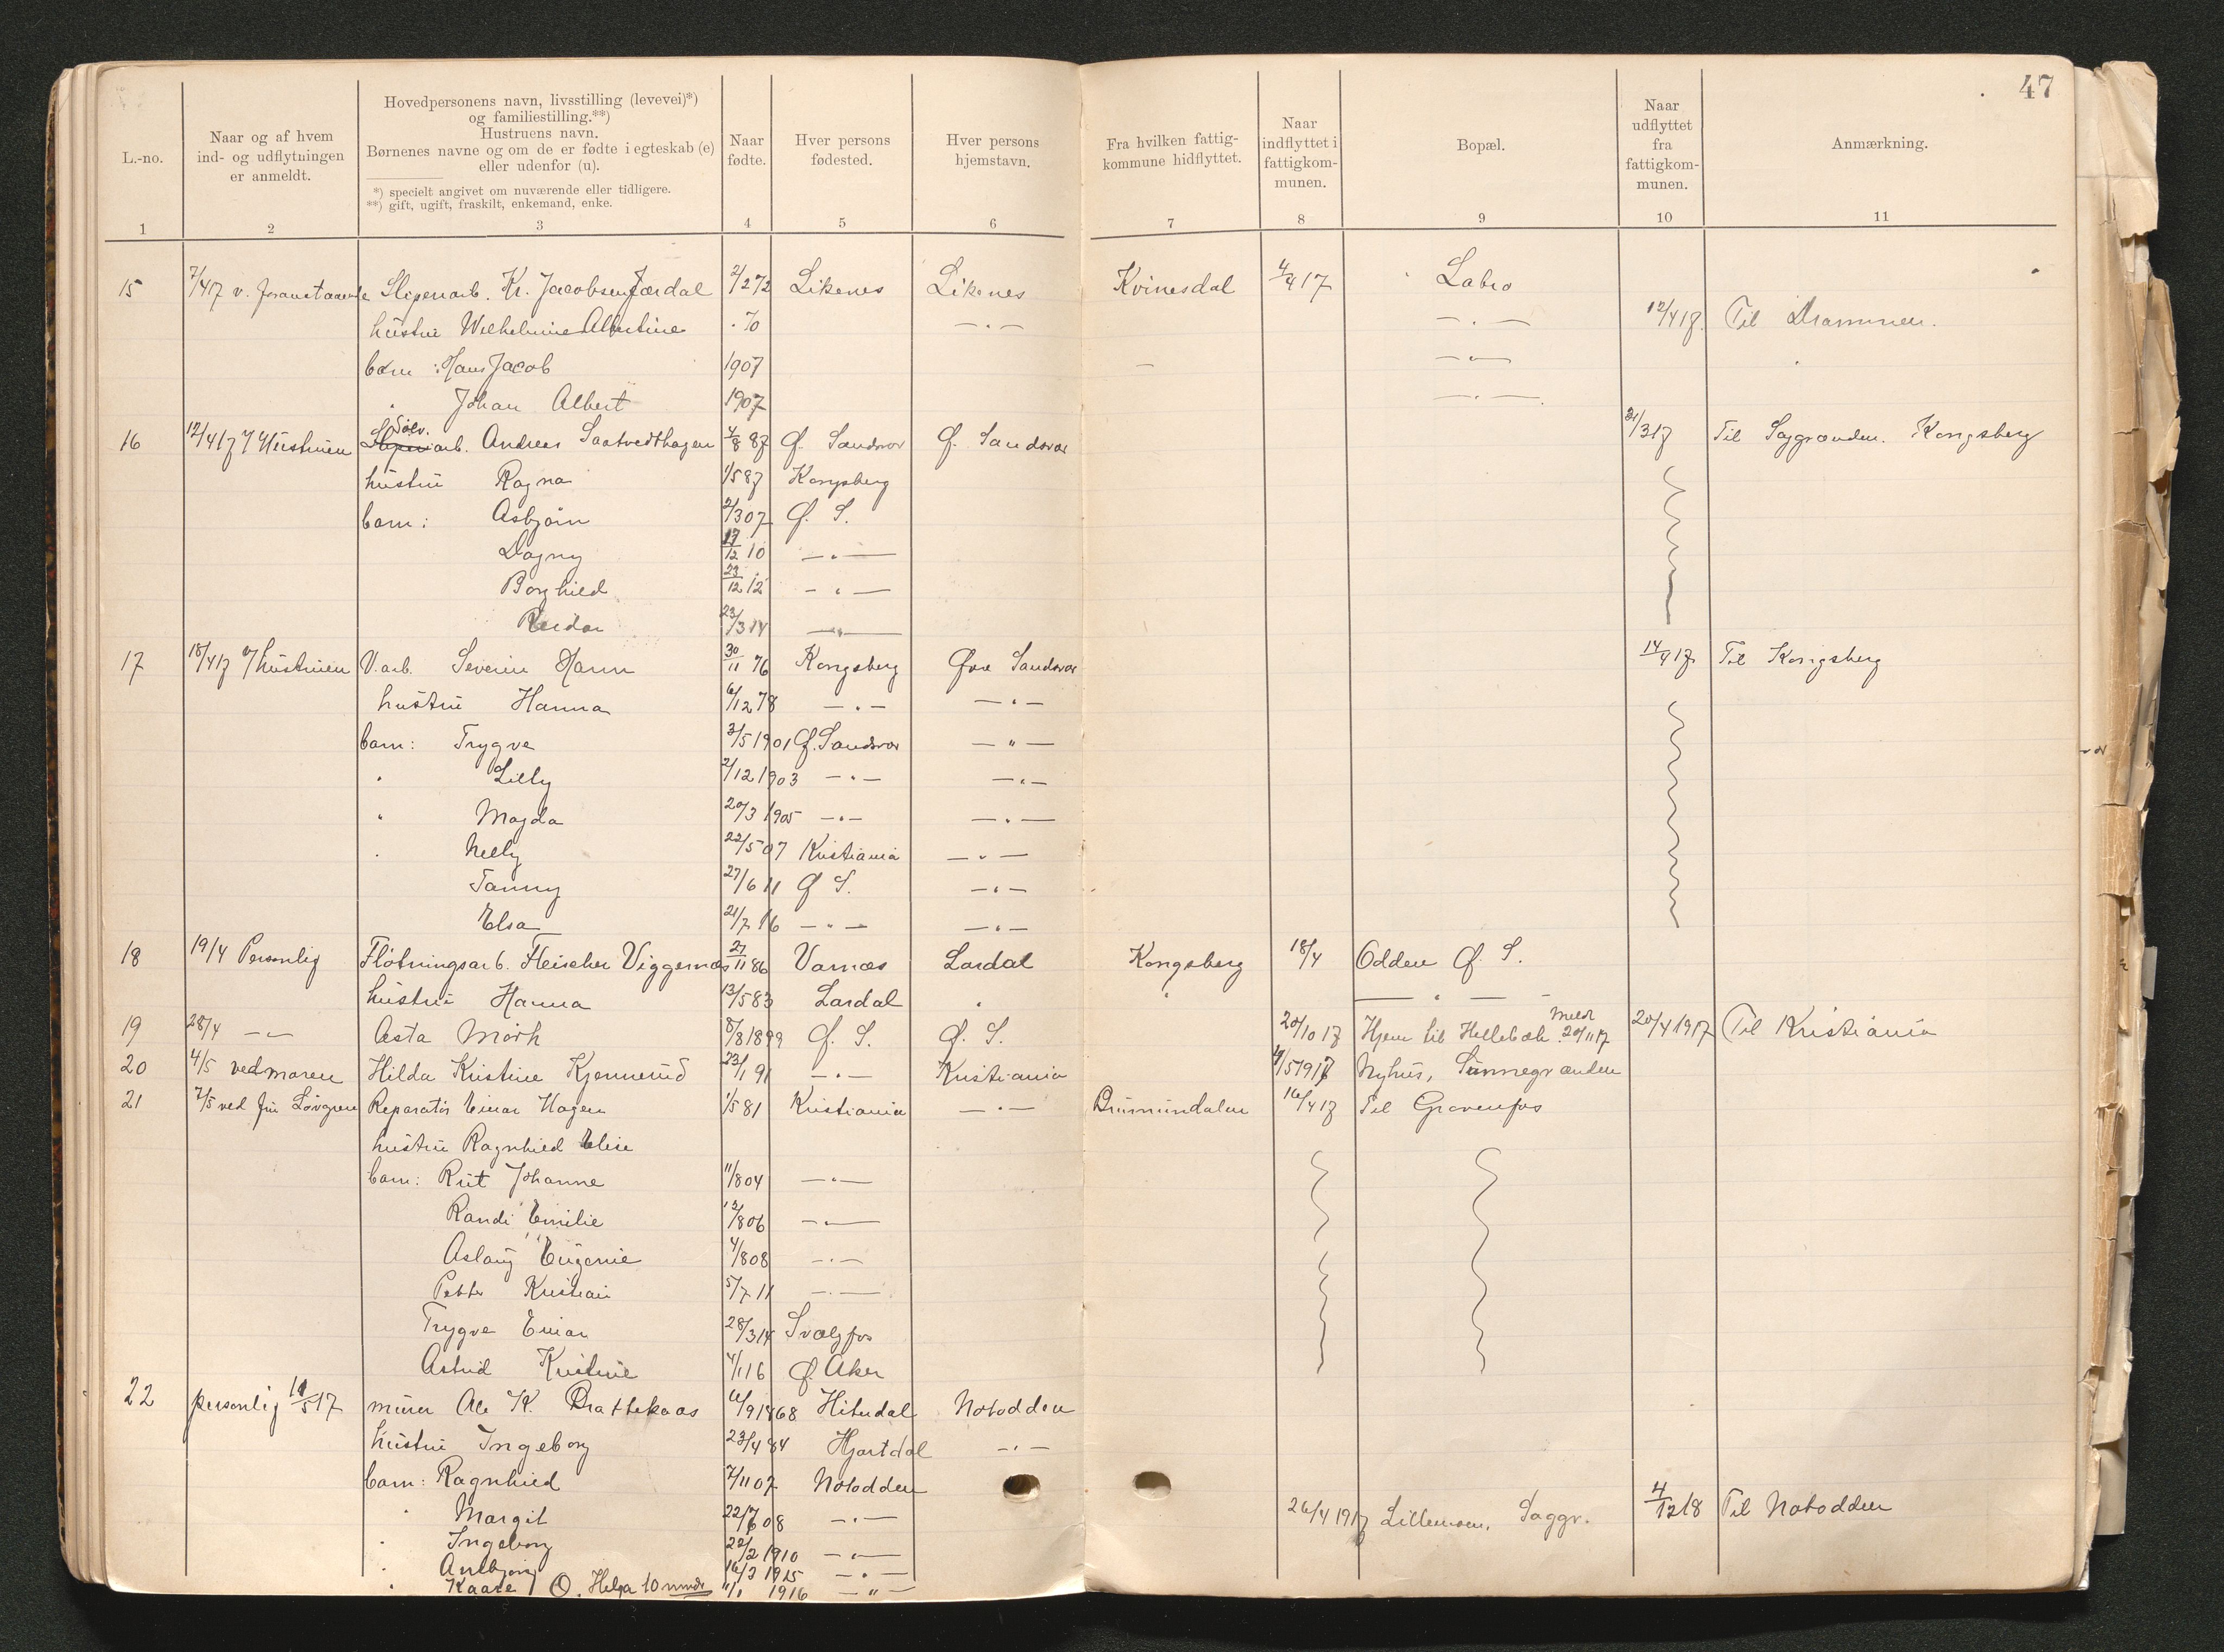 47
L.-no.
Naar og af hvem
ind- og udflytningen
er anmeldt.
Hovedpersonens navn, livsstilling (levevei)*)
og familiestilling.**)
Hustruens navn.
Børnenes navne og om de er fødte i egteskab (e)
eller udenfor (u).
*) specielt angivet om nuværende eller tidligere.
**) gift, ugift, fraskilt, enkemand, enke.
Naar
fødte.
Hver persons
fødested.
Hver persons
hjemstavn.
Fra hvilken fattig-
kommune hidflyttet.
Naar
indflyttet i
fattigkom-
munen.
Bopæl.
Naar
udflyttet
fra
fattigkom-
munen.
Anmærkning.
1 2 3 4 5 6 7 8 9 10 11
15 7/4 17 v. foranstaaende Sliperiarb. Kr. Jacobsen Jørdal 2/2 72 Likenes Likenes Kvinesdal 4/4 17 Labro
hustru Wilhelmine Albertine . 70 — " — — " — 12/4 17. Til Drammen.
barn : Hans Jacob 1907 — " —
" Johan Albert 1907 — " —
16 12/4 17 v/ Hustruen Sølv. Sliperiarb. Andreas Saatvedthagen 4/8 87 Ø. Sandsvær Ø. Sandsvær 31/3 17 Til Saggrænden. Kongsberg
hustru Ragna 1/5 87 Kongsberg
barn : Asbjørn 2/3 07 Ø. S.
Dagny 17/12 10 — " —
Borghild 23/12 12 — " —
Reidar 23/3 14 — " —
17 18/4 17 v/ hustruen V.arb. Severin Hamn 30/11 76 Kongsberg Øvre Sandsvær 14/4 17 Til Kongsberg
hustru Hanna 6/12 78 — " — — " —
barn : Trygve 3/5 1901 Ø. Sandsvær — " —
" Lilly 2/12 1903 — " — — " —
" Magda 20/3 1905 — " — — " —
" Nelly 22/5 07 Kristiania — " —
Fanny 27/6 11 Ø S. — " —
Elsa 21/7 16 — " — — " —
18 19/4 Personlig Fløtningsarb. Fleischer Viggernæs 27/11 86 Varnæs Lardal Kongsberg 18/4 Odden Ø. S.
hustru Hanna 13/5 83 Lardal " " — " —
19 28/4 — " — Asta Mørk 8/8 1899 Ø. S. Ø. S. 20/10 17 Hjem til Hellebæk. Meldt 20/11 17 20/4 1917 Til Kristiania
20 4/5 ved moren Hilda Kristine Kjennerud 23/1 91 — " — Kristiania 4/5 1917 Nyhus, Sønnegrænden
21 7/5 ved fru Løvgren Reparatør Einar Hagen 1/5 81 Kristiania — " — 16/4 17 Til Gravenfos
hustru Ragnhild Elise
barn : Rut Johanne 11/8 04 — " —
Randi Emilie 12/8 06 — " —
Aslaug Eugenie 4/8 08 — " —
Petter Kristian 5/7 11 — " —
Trygve Einar 28/3 14 Svælgfos
Astrid Kristine 4/1 16 Ø. Aker
22 personlig 11/5 17 murer Ole K. Brattekaas 6/9 1868 Hiterdal Notodden
hustru Ingeborg 23/4 84 Hjartdal — " —
barn : Ragnhild 7/11 07 Notodden
" Margit 22/7 08 — " — 26/4 1917 Lillemoen, Saggr. 4/12 18 Til Notodden
" Ingeborg 22/2 1910 — " —
" Anbjørg 16/3 1915 — " —
" Kaare 1916 — " —
O. Helga 10 mndr